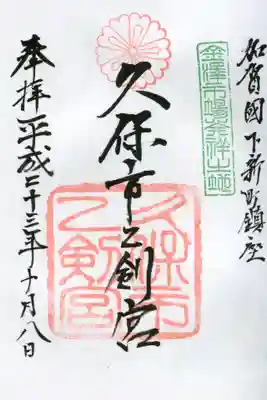 加賀國下新町鎮座
金澤市場発祥之地
久保市乙剣宮
久保市
乙剣宮
奉拝 平成二十三年十月八日